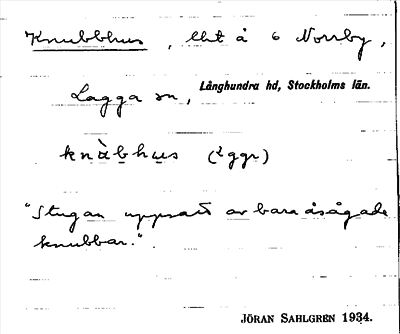 Knubbhus, lht å 6 Norrby,
Lagga sn, Långhundra hd, Stockholms län.
knùbhus (2 ggr)
"Stugan uppsatt av bara åsågade
knubbar."
JÖRAN SAHLGREN 1934.